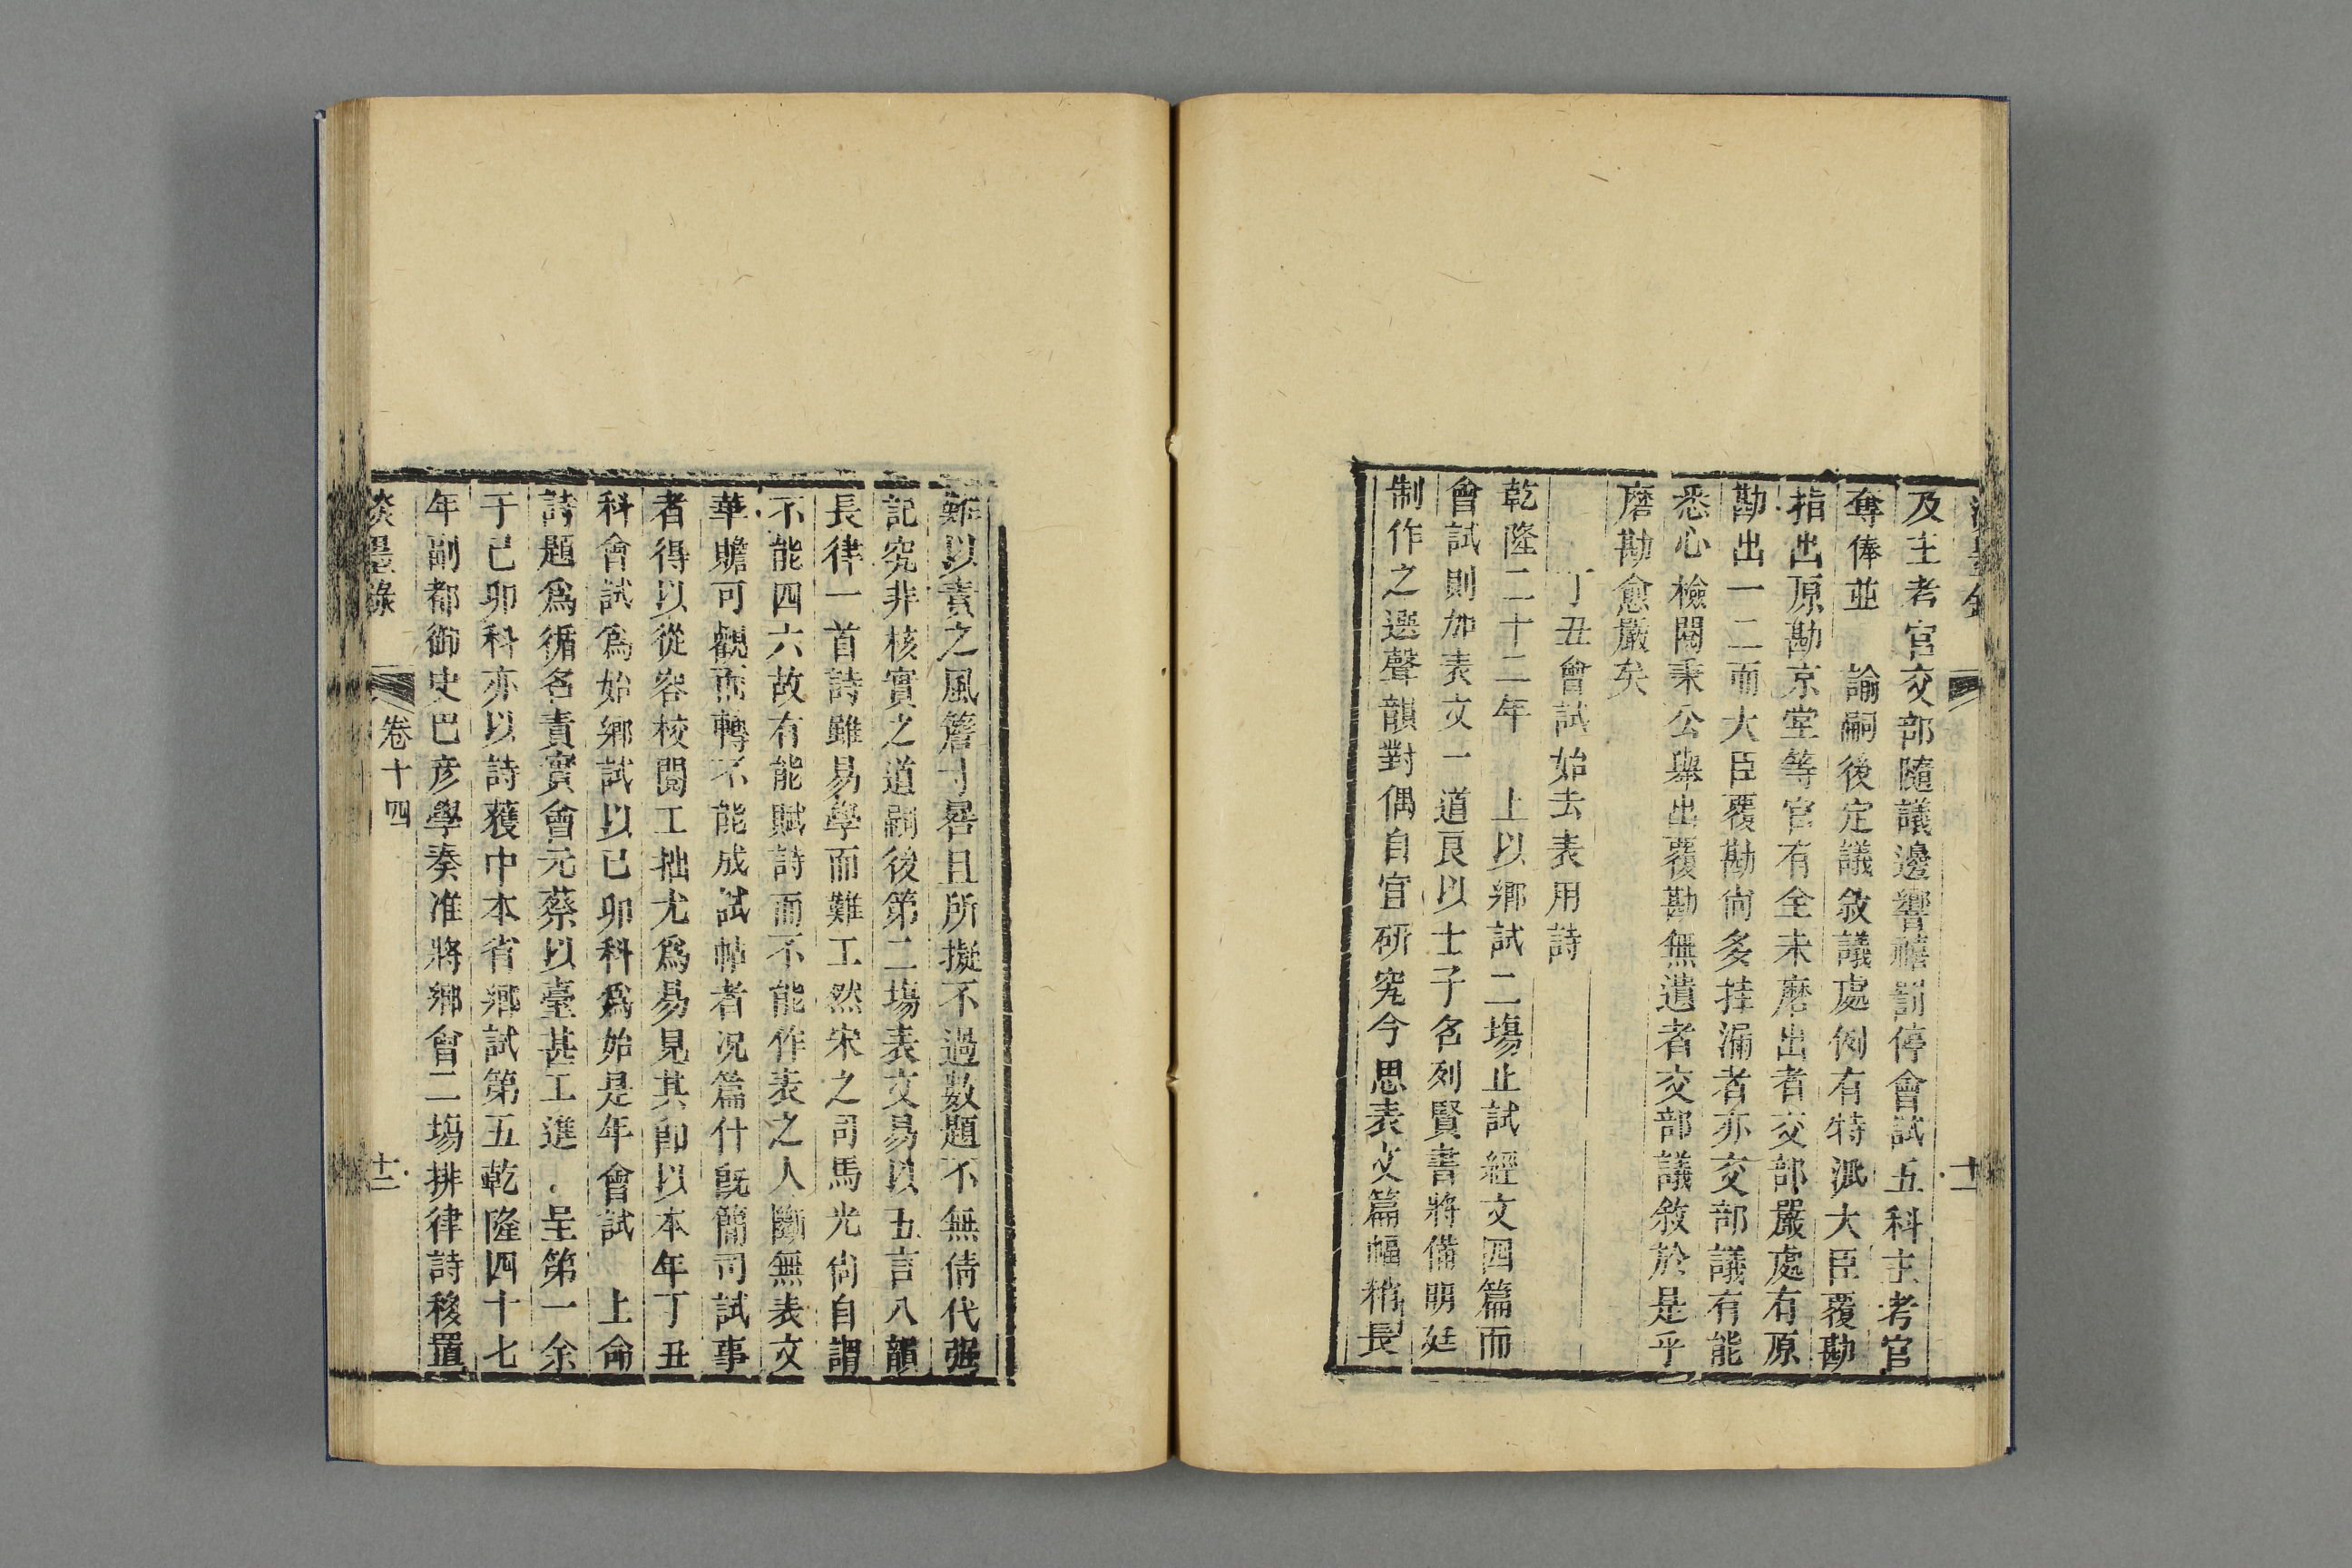 十一
及主考官交部隨議邊響禧罰停會試五科主考官
奪俸並　諭嗣後定議敘議處例有特派大臣覆勘
指出原勘京堂等官有全未磨出者交部嚴處有原
勘出一二而大臣覆勘尙多挂漏者亦交部議有能
悉心檢閱秉公舉出覆勘無遺者交部議敘於是乎
磨勘愈嚴矣
丁丑會試始去表用詩
乾隆二十二年　上以鄉試二塲止試經文四篇而
會試則加表文一道良以士子名列賢書將備明廷
制作之選聲韻對偶自宜硏究今思表文篇幅稍長
難以責之風簷寸晷且所擬不過數題不無倩代强
記究非核實之道嗣後第二塲表文易以五言八韻
長律一首詩雖易學而難工然宋之司馬光尙自謂
不能四六故有能賦詩而不能作表之人斷無表文
華贍可觀而轉不能成試帖者况篇什旣簡司試事
者得以從容校閱工拙尤爲易見其卽以本年丁丑
科會試爲始鄉試以已卯科爲始是年會試　上命
詩題爲循名責實會元蔡以臺甚工進　呈第一余
于已卯科亦以詩獲中本省鄉試第五乾隆四十七
年副都御史巴彦學奏准將鄉會二塲排律詩移置
淡墨錄　卷十四　十二